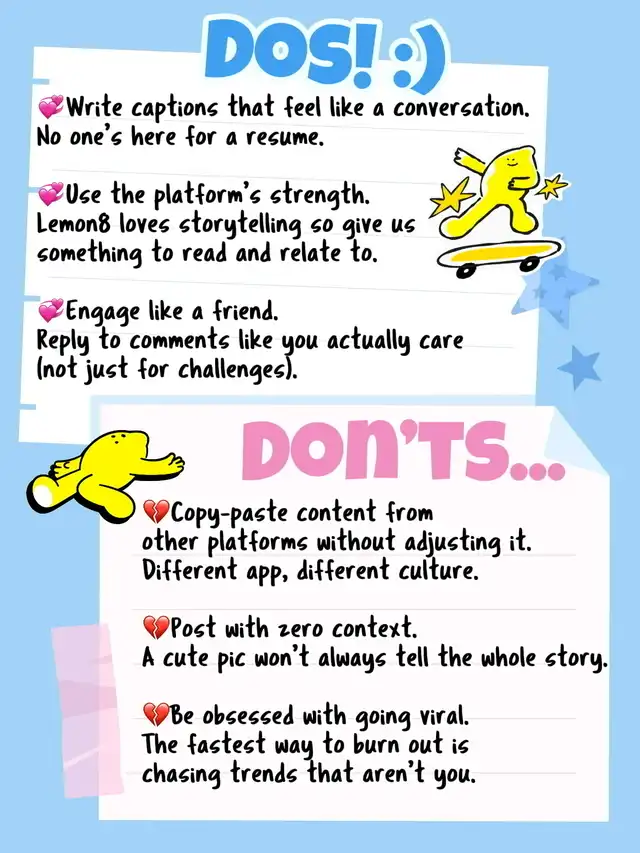 DOS! :)
💞Write captions that feel like a conversation.
No one's here for a resume.
💞Use the platform's strength.
Lemon8 loves storytelling so give us
something to read and relate to.
💞Engage like a friend.
Reply to comments like you actually care
(not just for challenges).
DON'TS...
💔Copy-paste content from
other platforms without adjusting it.
Different app, different culture.
💔Post with zero context.
A cute pic won't always tell the whole story.
💔Be obsessed with going viral.
The fastest way to burn out is
chasing trends that aren't you.